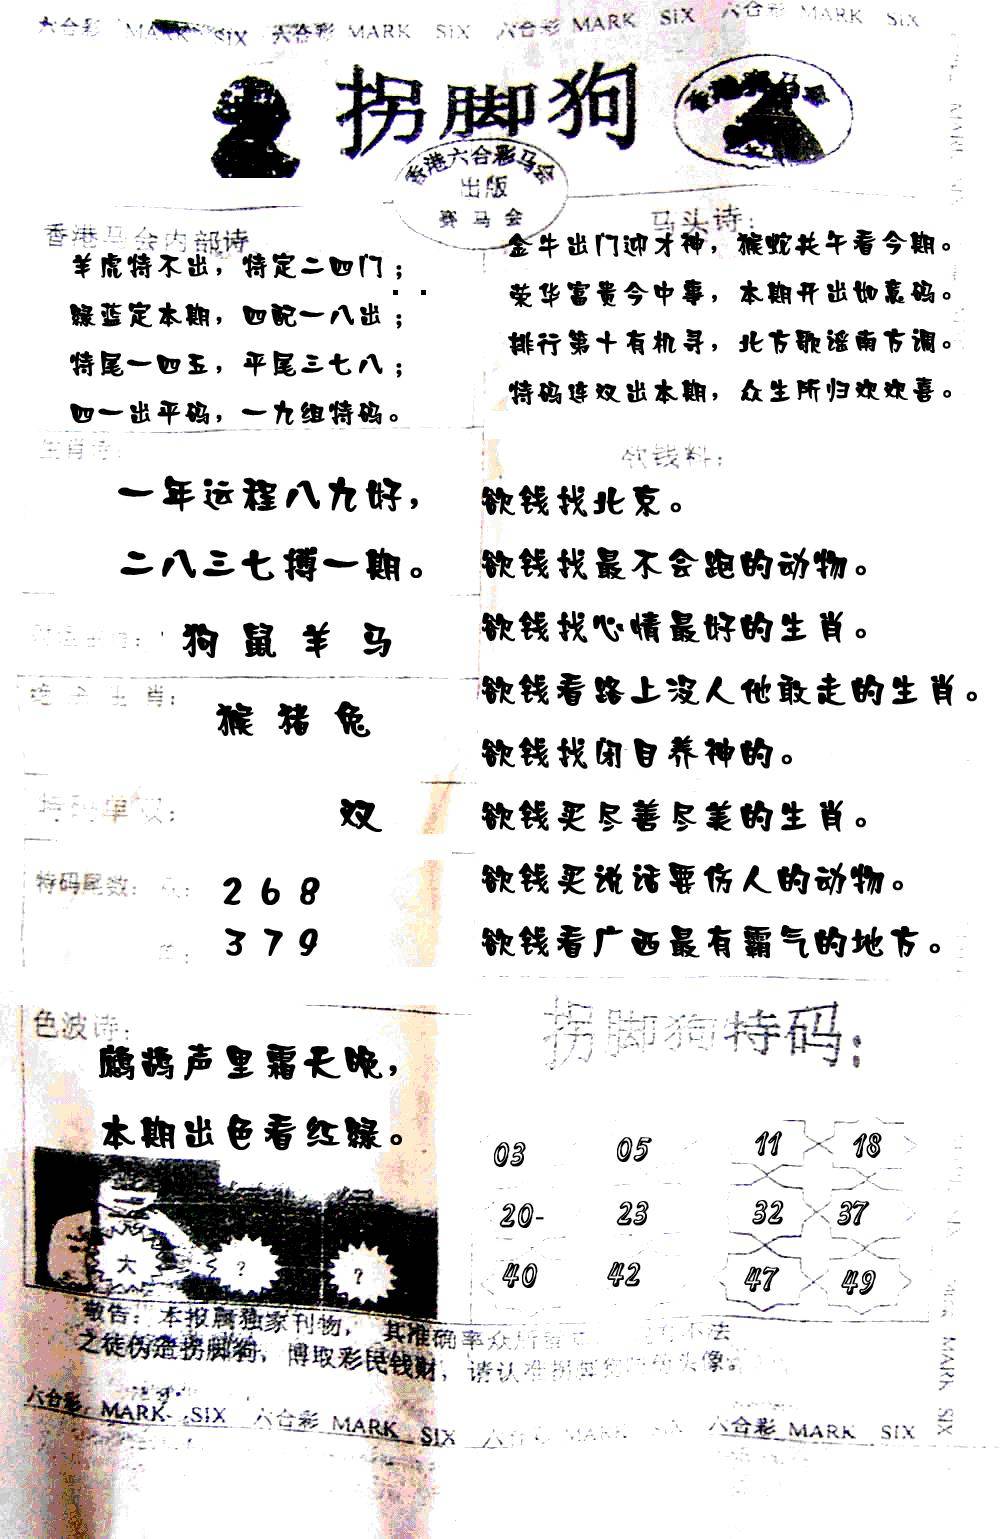 六合彩 MARK SIX 六合彩 MARK SIX 六合彩 MARK SIX 六合彩 MARK SIX
拐脚狗
香港六合彩马会
出版
赛马会
香港马会内部诗
羊虎特不出，特定二四门；
绿蓝定本期，四配一八出；
特尾一四五，平尾三七八；
四一出平码，一九组特码。
马头诗：
金牛出门迎才神，猴蛇共午看今期。
荣华富贵今中事，本期开出如意码。
排行第十有机寻，北方歌谣南方调。
特码连双出本期，众生所归欢欢喜。
生肖诗：
一年远程八九好，
二八三七搏一期。
狗鼠羊马
生肖：
猴猪兔
特码单双：
双
特码尾数：
268
379
欲钱料：
欲钱找北京。
欲钱找最不会跑的动物。
欲钱找心情最好的生肖。
欲钱看路上没人他敢走的生肖。
欲钱找闭目养神的。
欲钱买尽善尽美的生肖。
欲钱买说话要伤人的动物。
欲钱看广西最有霸气的地方。
色波诗：
鹧鸪声里霜天晚，
本期出色看红绿。
大 ? ?
拐脚狗特码：
03 05 11 18
20- 23 32 37
40 42 47 49
敬告：本报属独家刊物，其准确率众所 不法
之徒伪造拐脚狗，博取彩民钱财，请认准拐脚 头像。
六合彩 MARK SIX 六合彩 MARK SIX 六合 MARK 六合彩 MARK SIX
MARK SIX